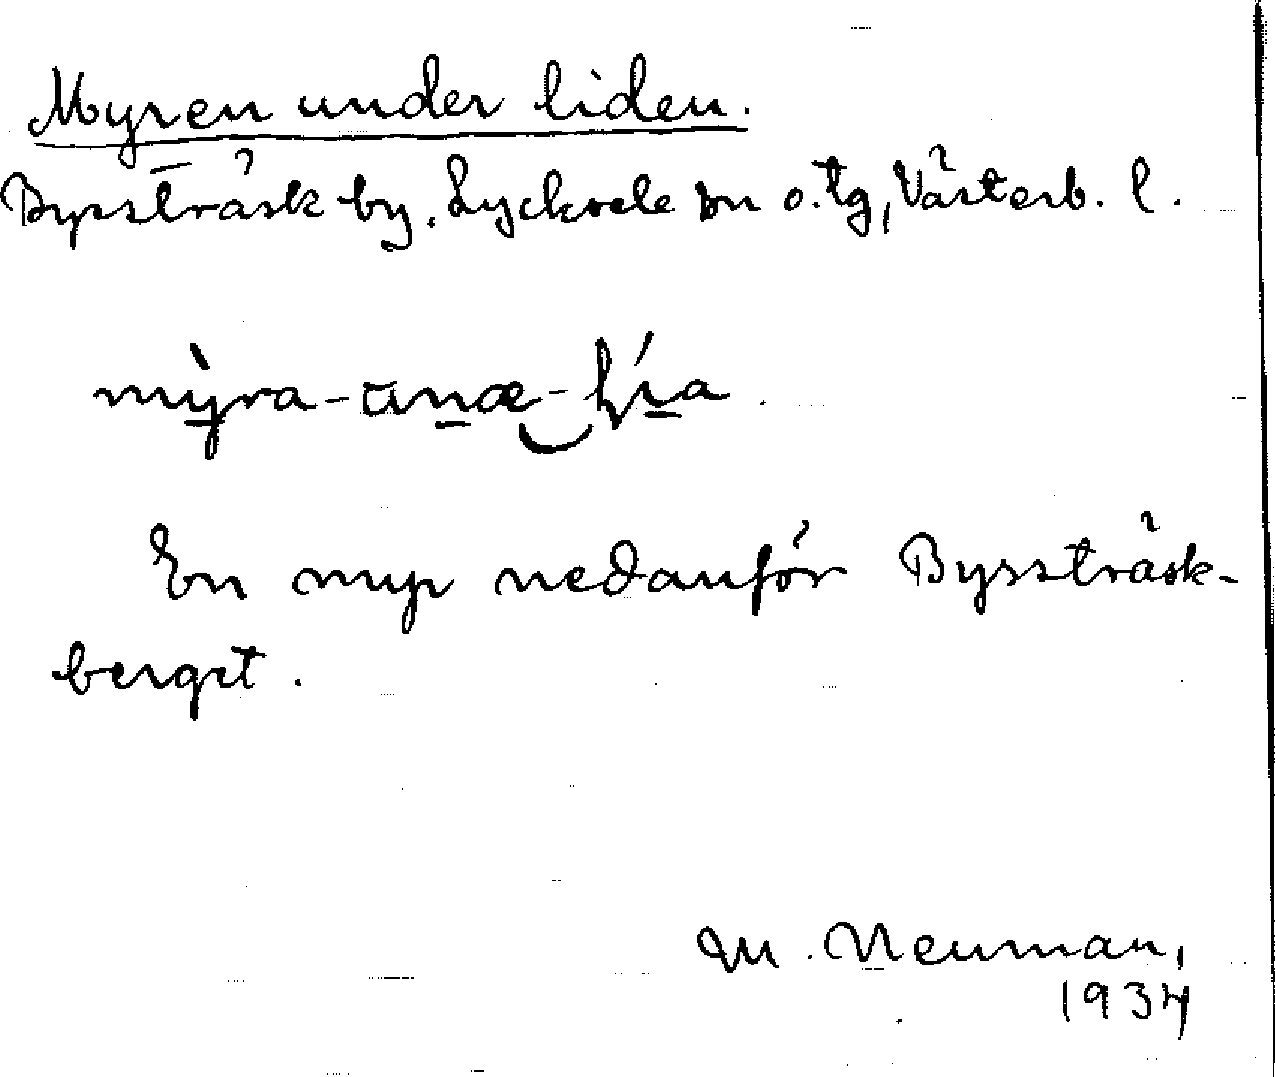 Myren under liden.
Bysträsk by. Lycksele sn o. tg, Västerb. l.
mỳra-ʉnæ-lía.
En myr nedanför Byssträsk-
berget.
M. Neuman,
1934